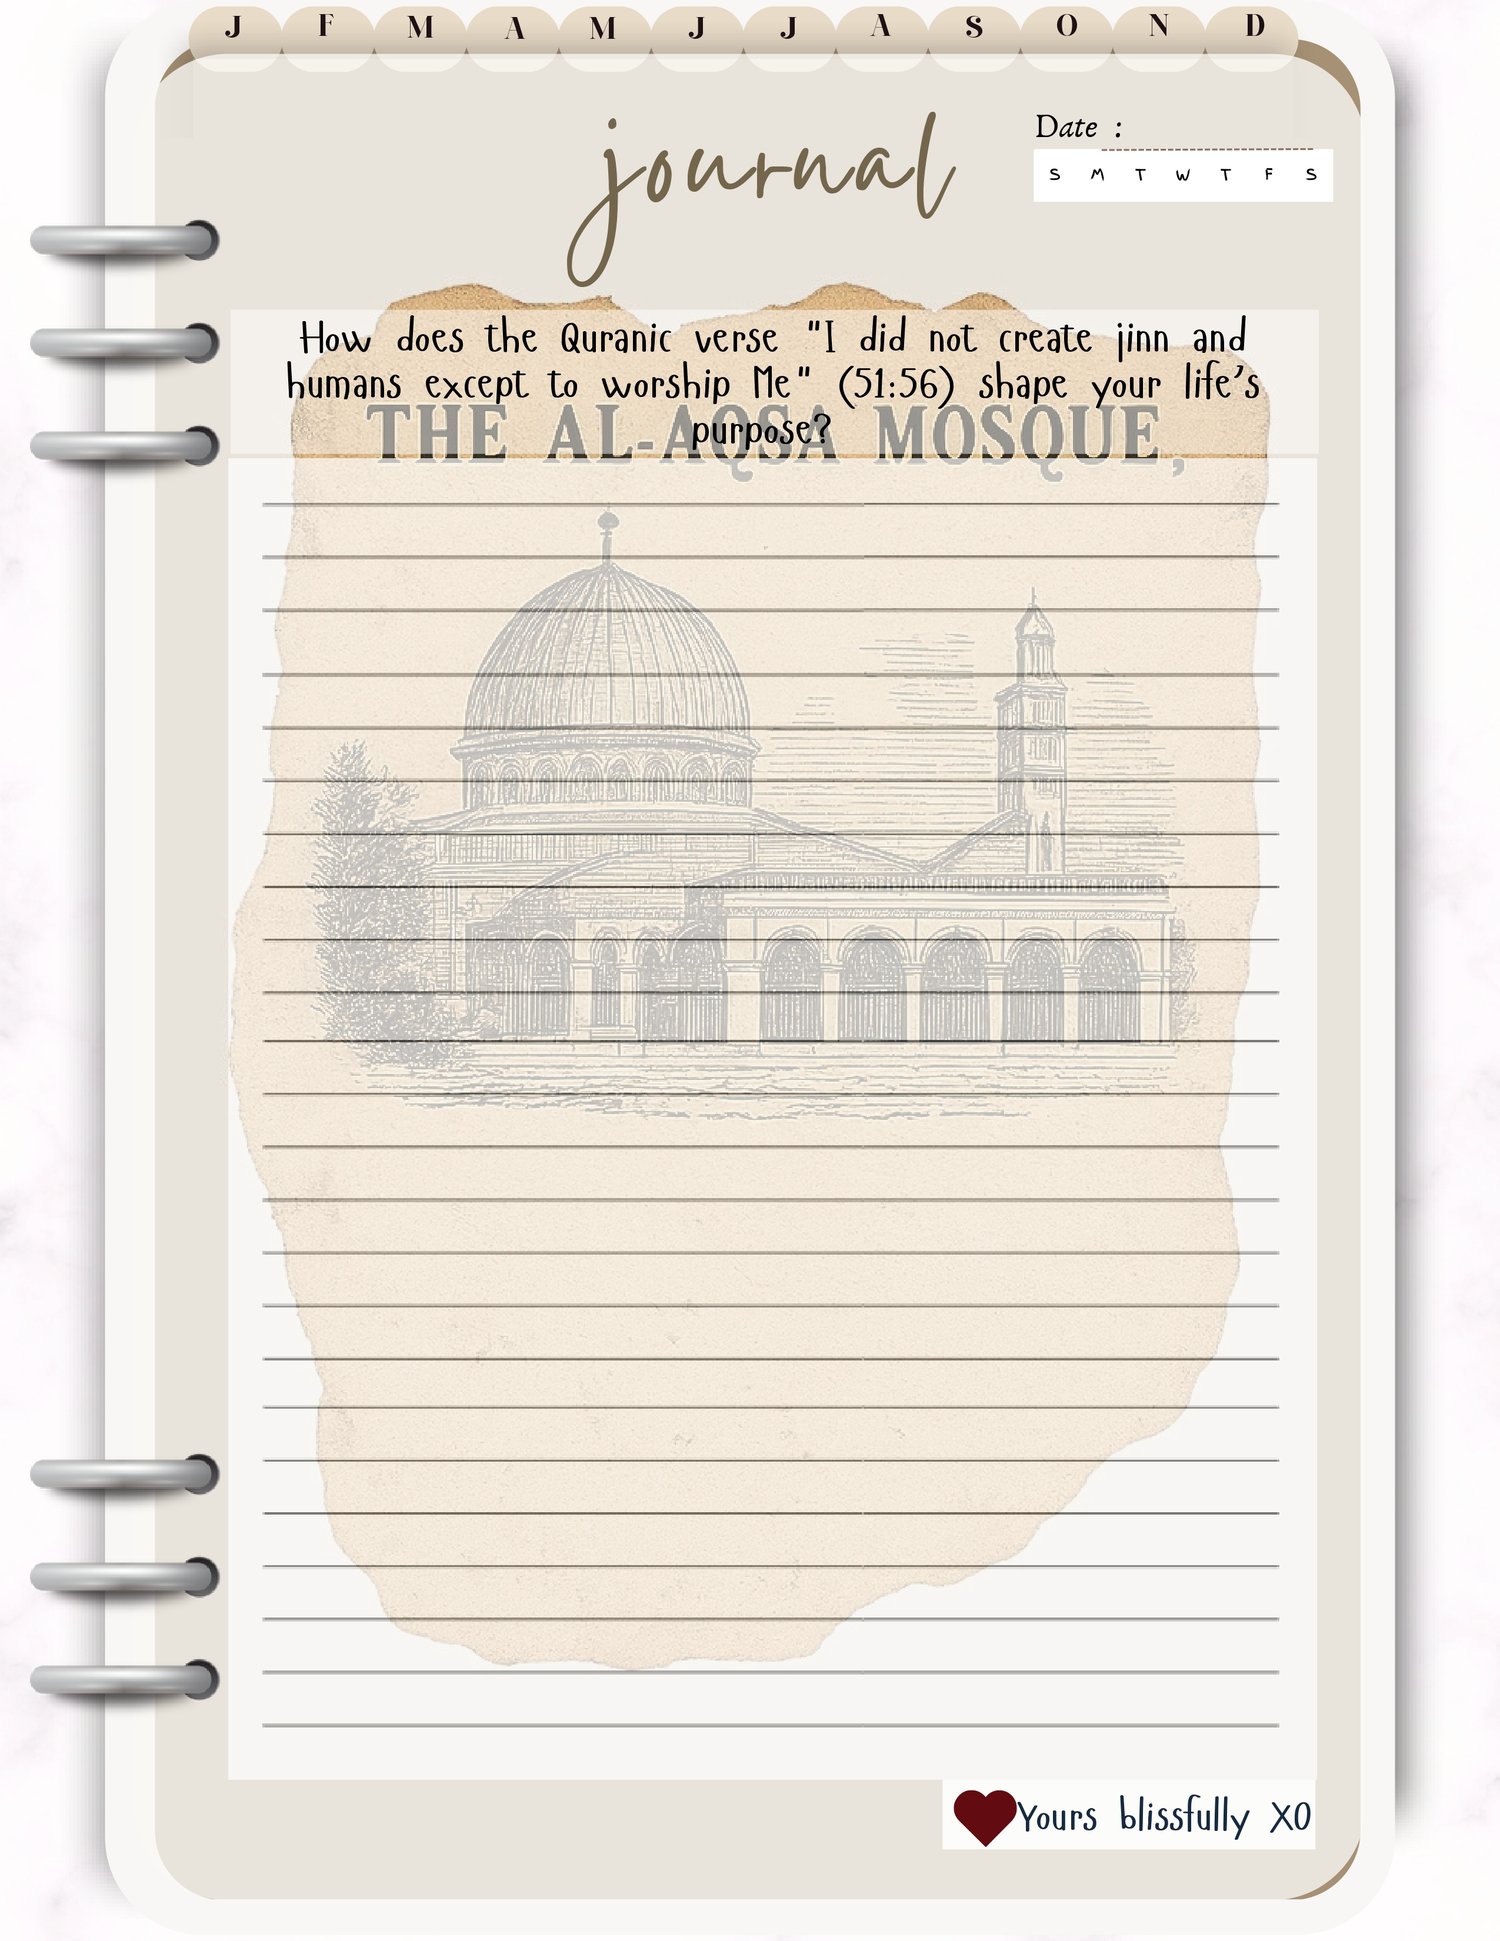 J F M A M J J A S O N D
journal
Date :
S M T W T F S
How does the Quranic verse "I did not create jinn and
humans except to worship Me" (51:56) shape your life's
purpose?
THE AL-AQSA MOSQUE,
Yours blissfully XO